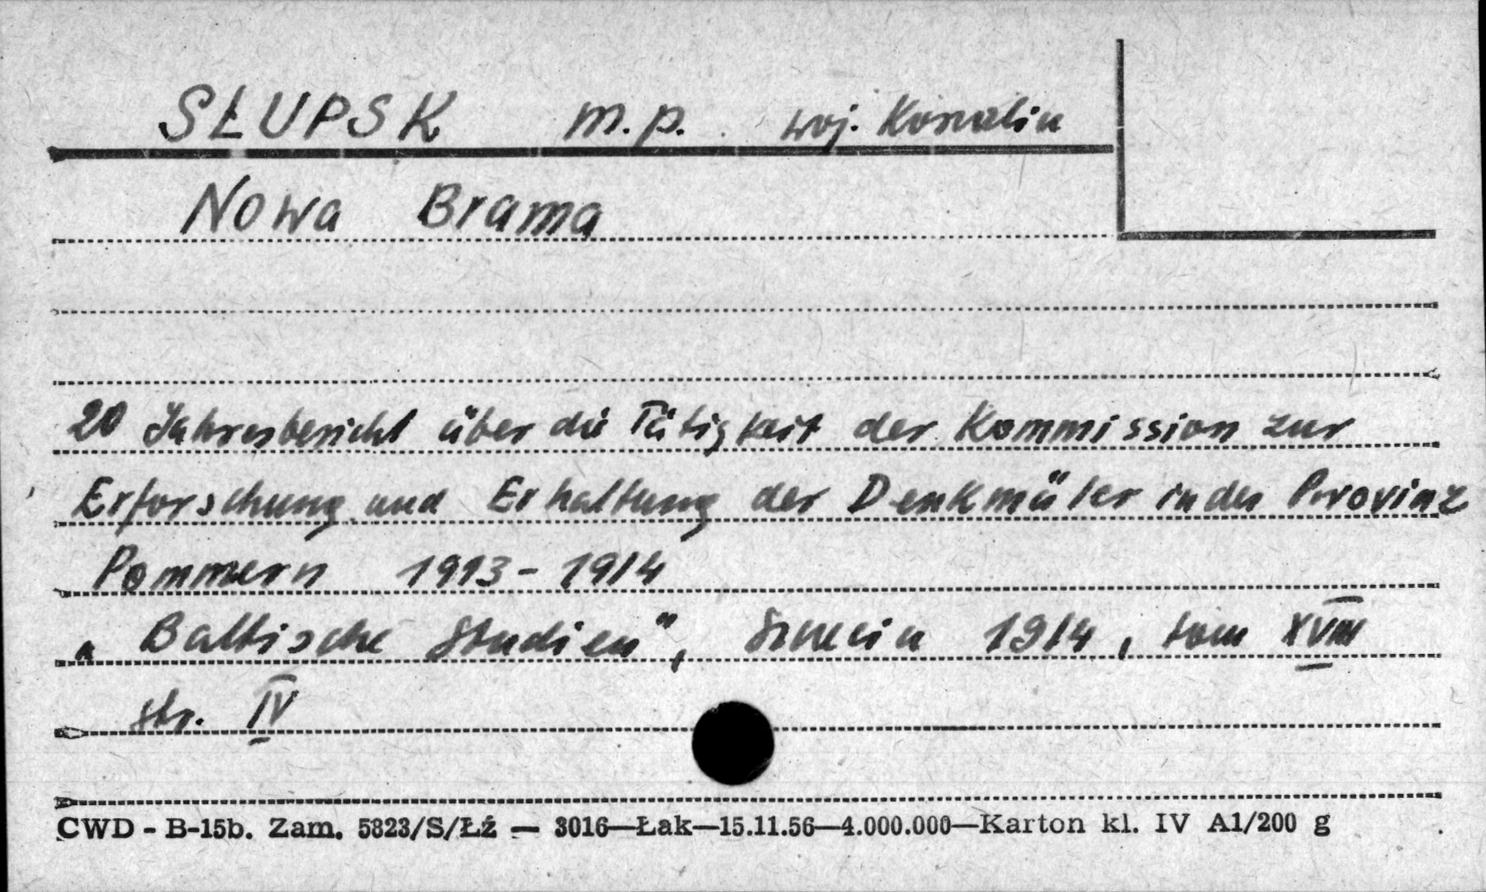 SŁUPSK m.p. woj. Koszalin
Nowa Brama
20 Jahresbericht über die Tätigkeit der Kommission zur
Erforschung und Erhaltung der Denkmäler in der Provinz
Pommern 1913-1914
„Baltische Studien", Szczecin 1914, tom XVIII
str. IV
CWD - B-15b. Zam. 5823/S/Łź — 3016—Łak—15.11.56—4.000.000—Karton kl. IV A1/200 g